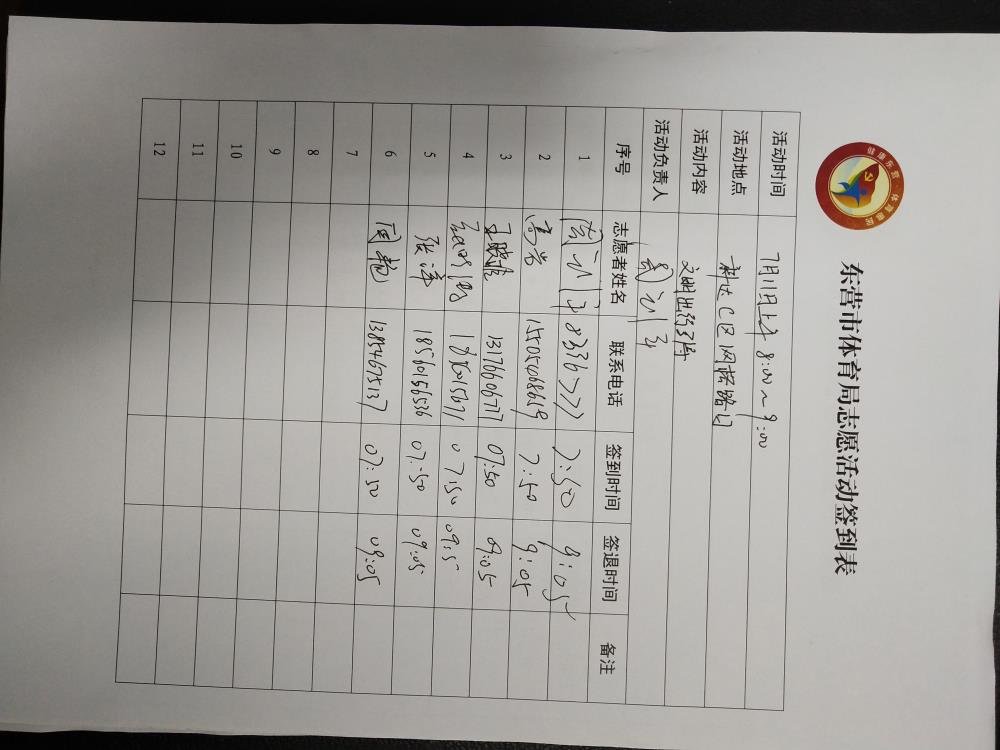 东营市体育局志愿活动签到表
活动时间 7月11日上午 8:00~9:00
活动地点 C区网格路口
活动内容 文明出行引导
活动负责人
序号 志愿者姓名 联系电话 签到时间 签退时间 备注
1 8336777 7:50 9:05
2 高岩 15505468619 7:50 9:05
3 王晓 13176606717 07:50 09:05
4 07:50 09:5
5 张萍 18560156536 07:50 09:05
6 周艳 13854675137 07:50 09:05
7
8
9
10
11
12